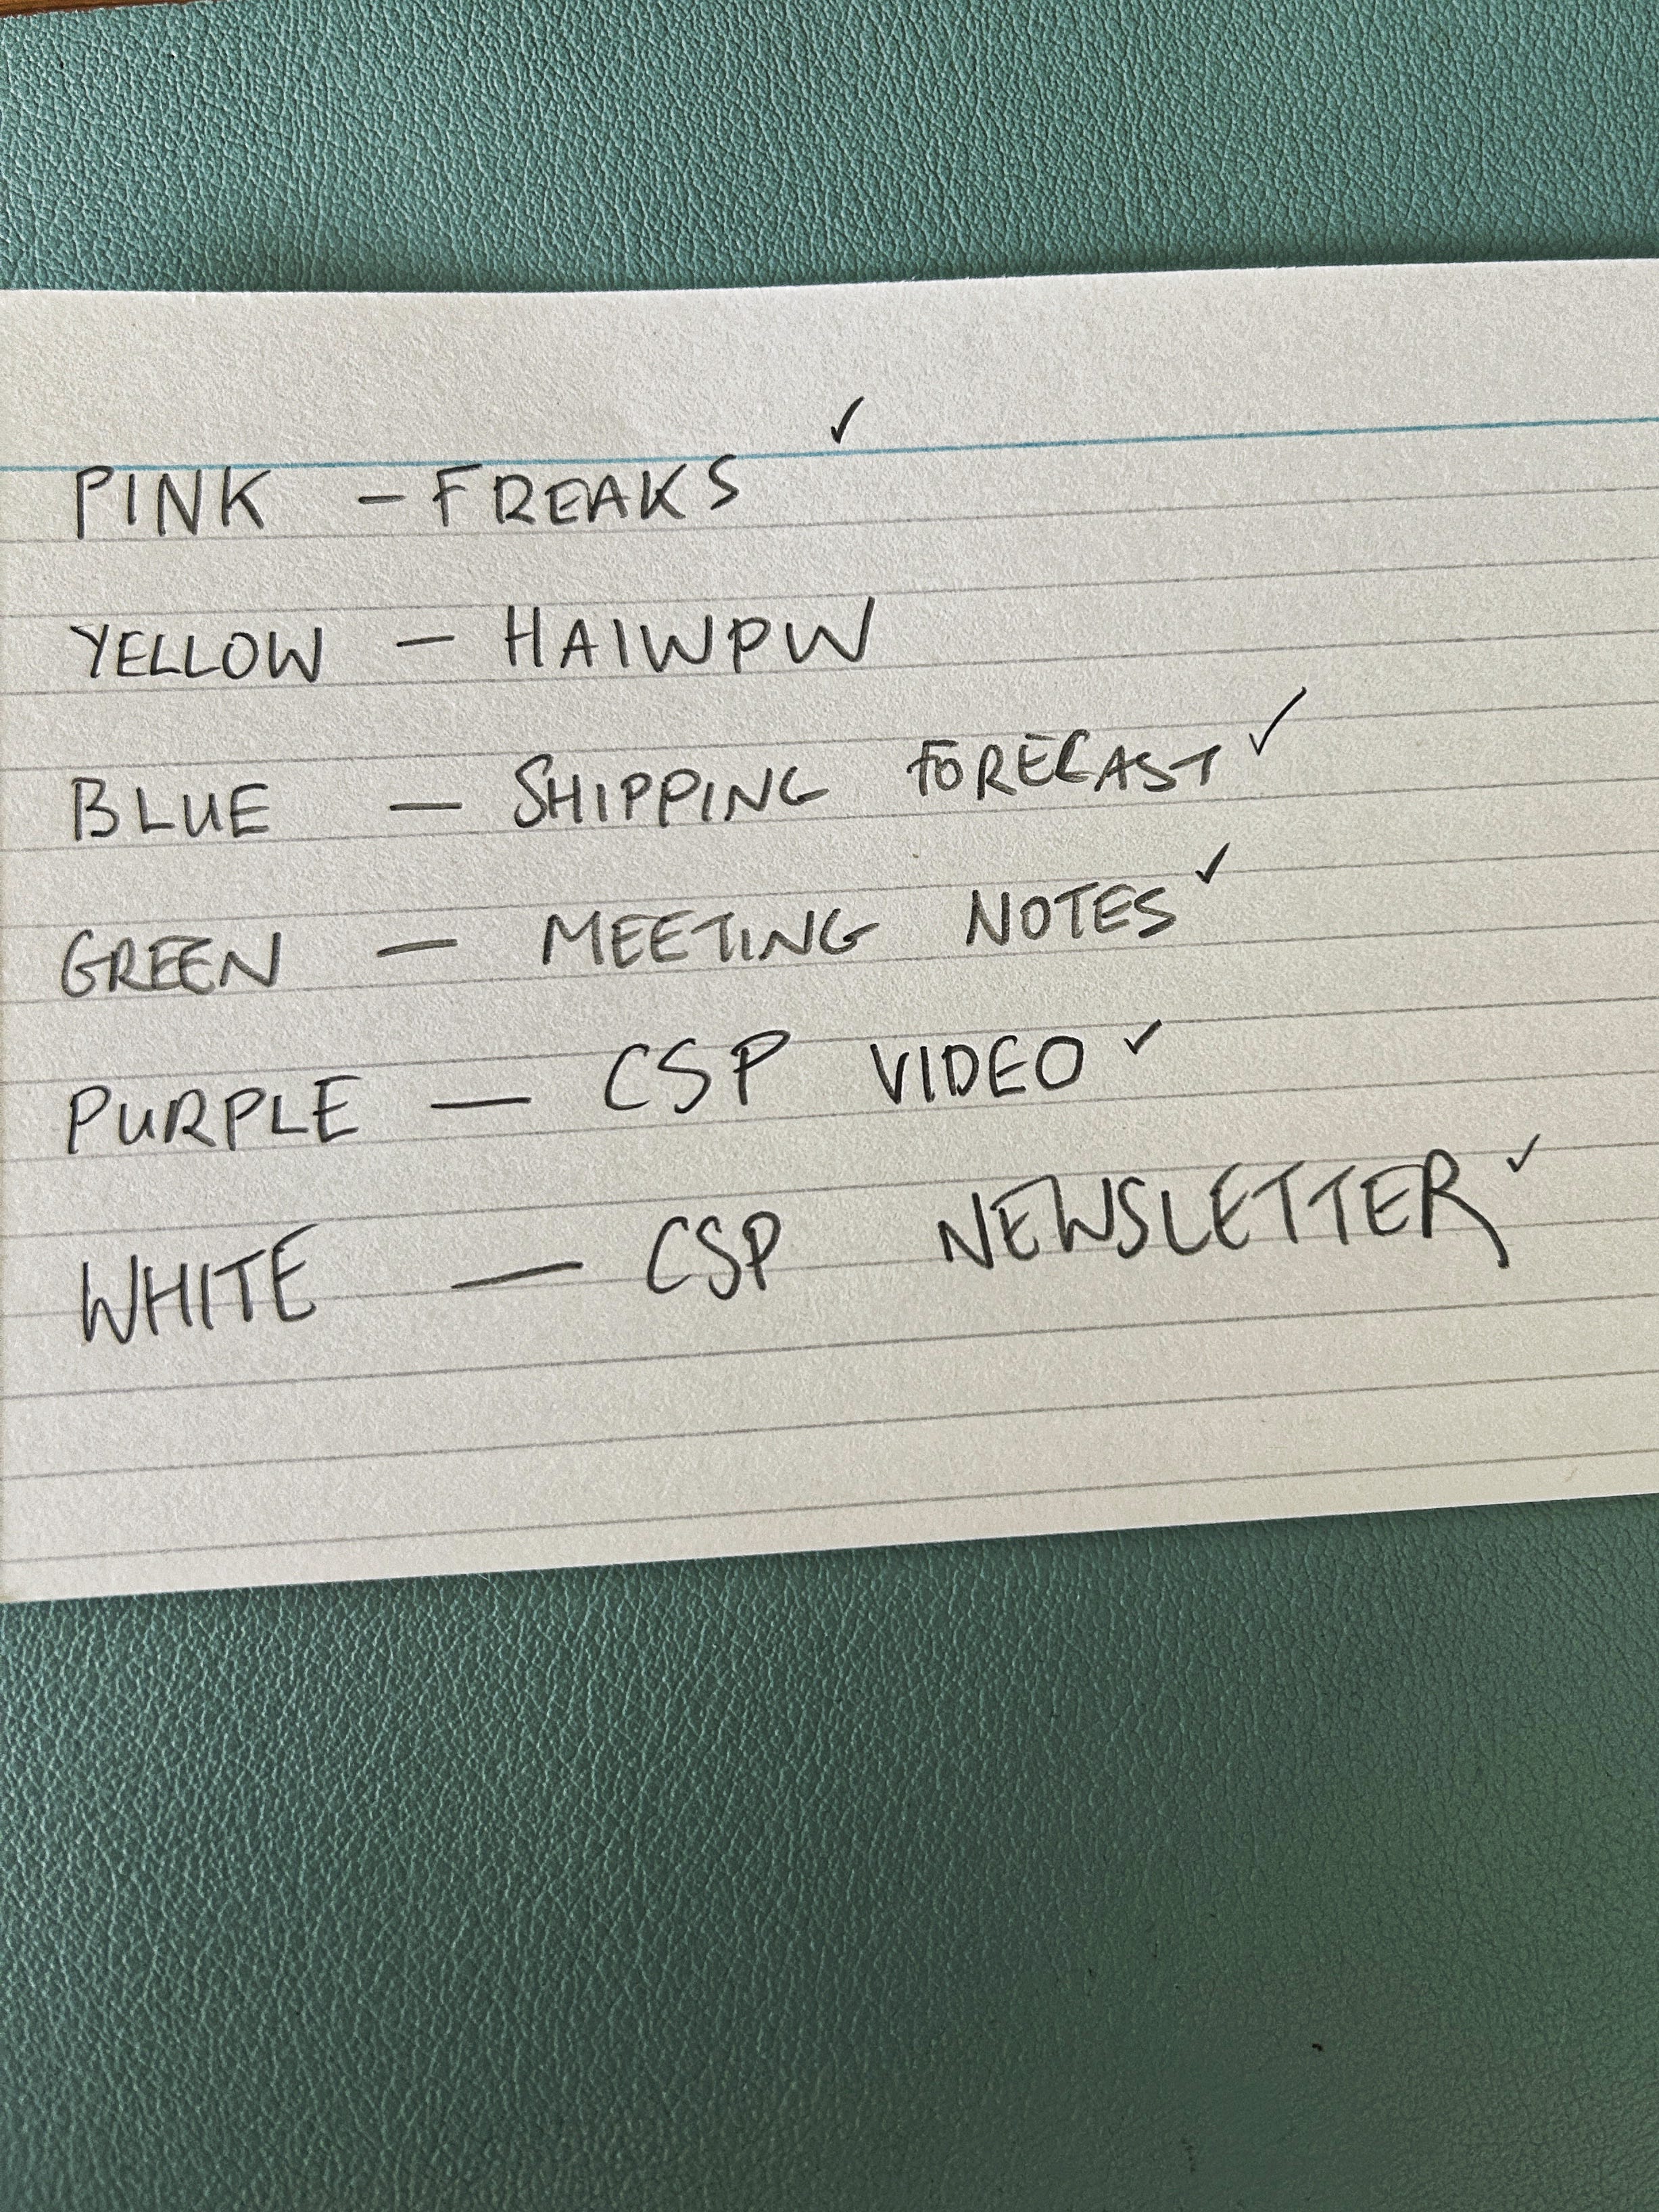 PINK – FREAKS ✓
YELLOW – HAIWPW
BLUE – SHIPPING FORECAST ✓
GREEN – MEETING NOTES ✓
PURPLE – CSP VIDEO ✓
WHITE – CSP NEWSLETTER ✓